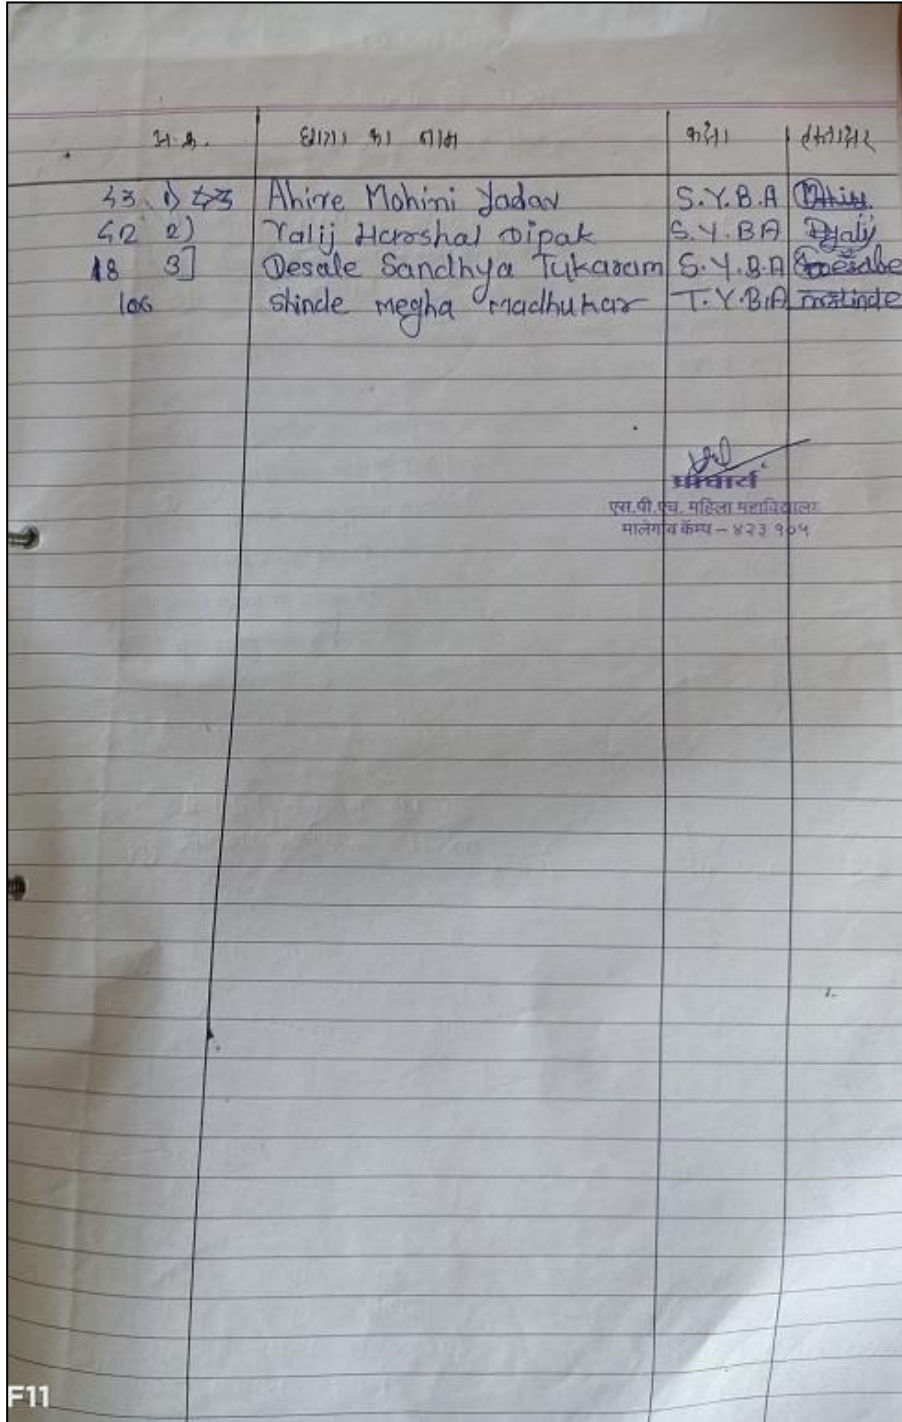 अ.क्र. छात्रा का नाम कक्षा हस्ताक्षर
43 1) Ahire Mohini Yadav S.Y.B.A
42 2) Yalij Harshal Dipak S.Y.BA Dyalij
18 3] Desale Sandhya Tukaram S.Y.B.A
106 Shinde megha madhukar T.Y.B.A mshinde
प्राचार्य
एस.पी.एच. महिला महाविद्यालय
मालेगाव कॅम्प – ४२३ १०५
F11